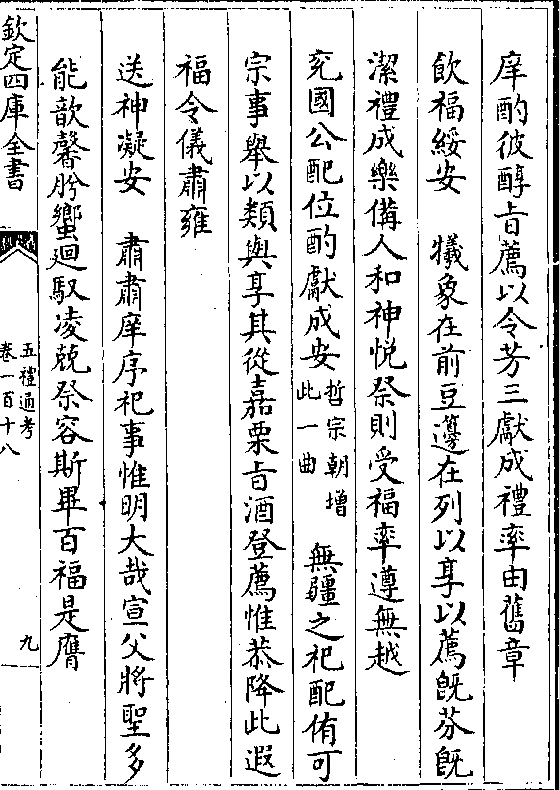 庠酌彼醇旨薦以令芳三獻成禮率由舊章
飲福綏安　犧象在前豆籩在列以享以薦既芬既
潔禮成樂備人和神悅祭則受福率遵無越
兗國公配位酌獻成安哲宗朝增此一曲　無疆之祀配侑可
宗事舉以類與享其從嘉栗旨酒登薦惟恭降此遐
福令儀肅雍
送神凝安　肅肅庠序祀事惟明大哉宣父將聖多
能歆馨肸蠁迴馭凌兢祭容斯畢百福是膺
欽定四庫全書
五禮通考
卷一百十八
九